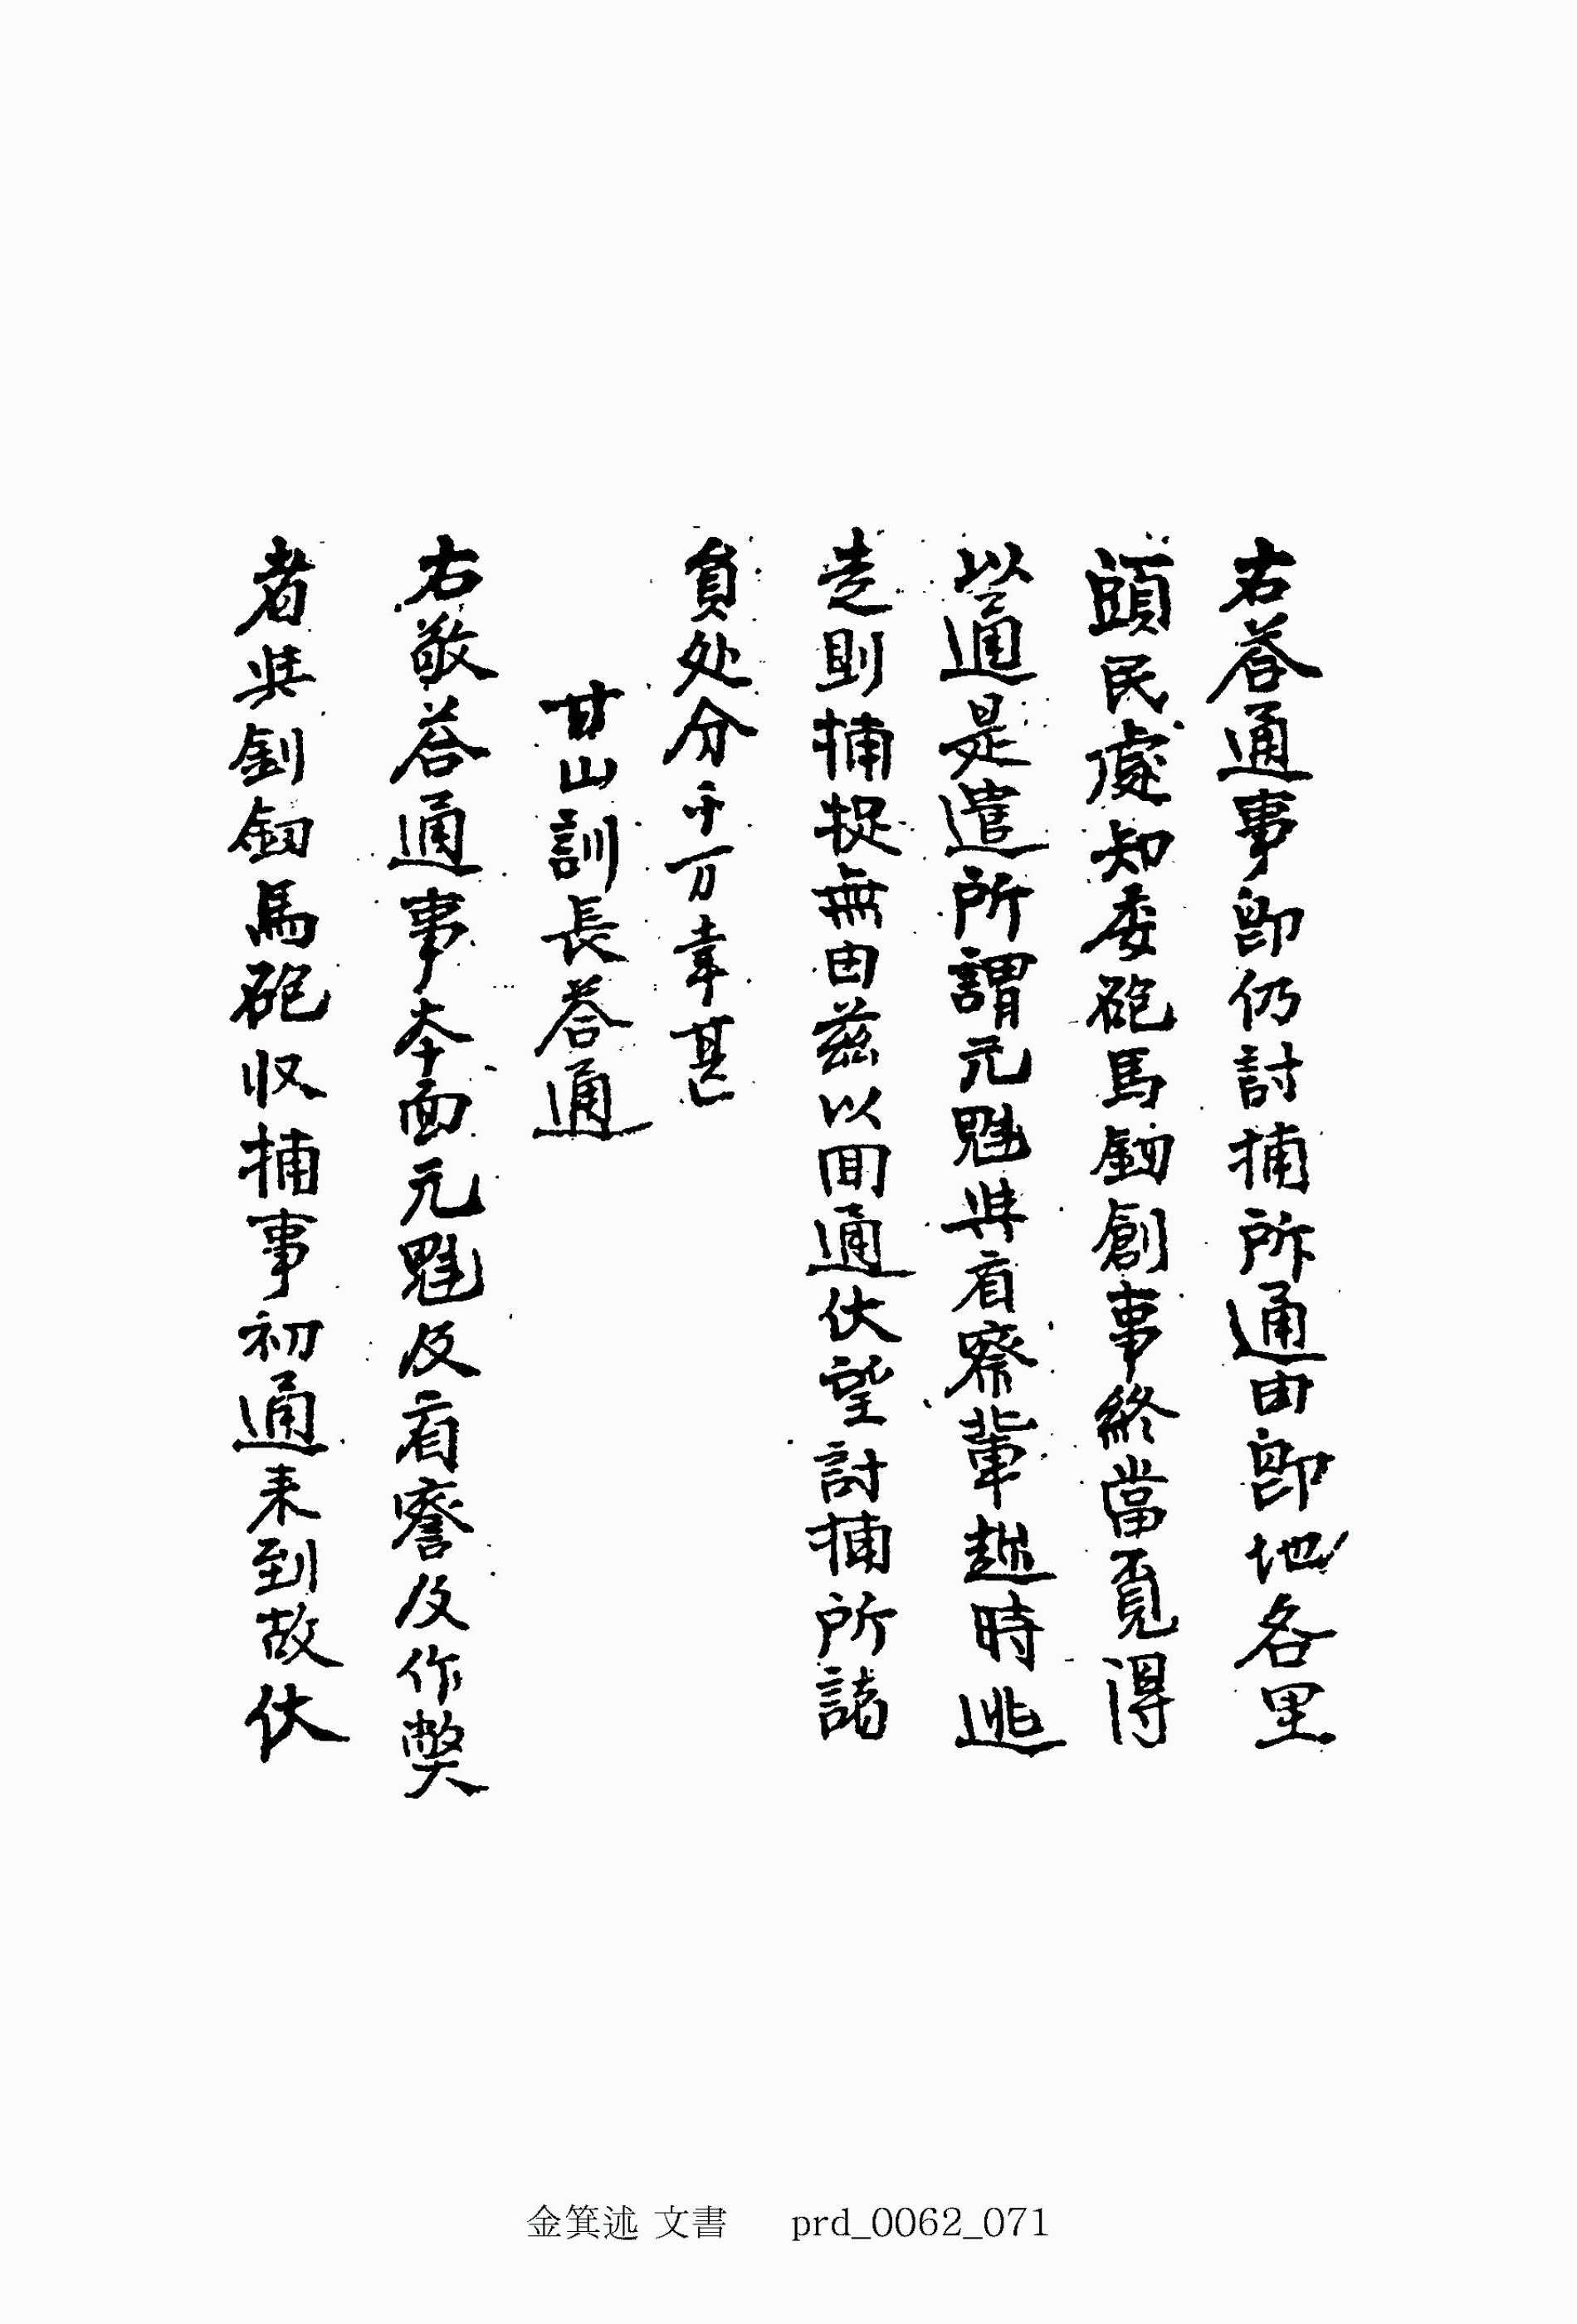 右答通事卽仍討捕所通由卽地各里
頭民處知委砲馬釼創事終當覓得
以通是遣所謂元魁與省察輩趂時逃
走則捕捉無由玆以回通伏望討捕所諸
員处分千万幸甚
甘山訓長答通
右敬答通事本面元魁及省察及作獘
者與釗釼馬砲収捕事初通未到故伏
金箕述 文書 prd_0062_071